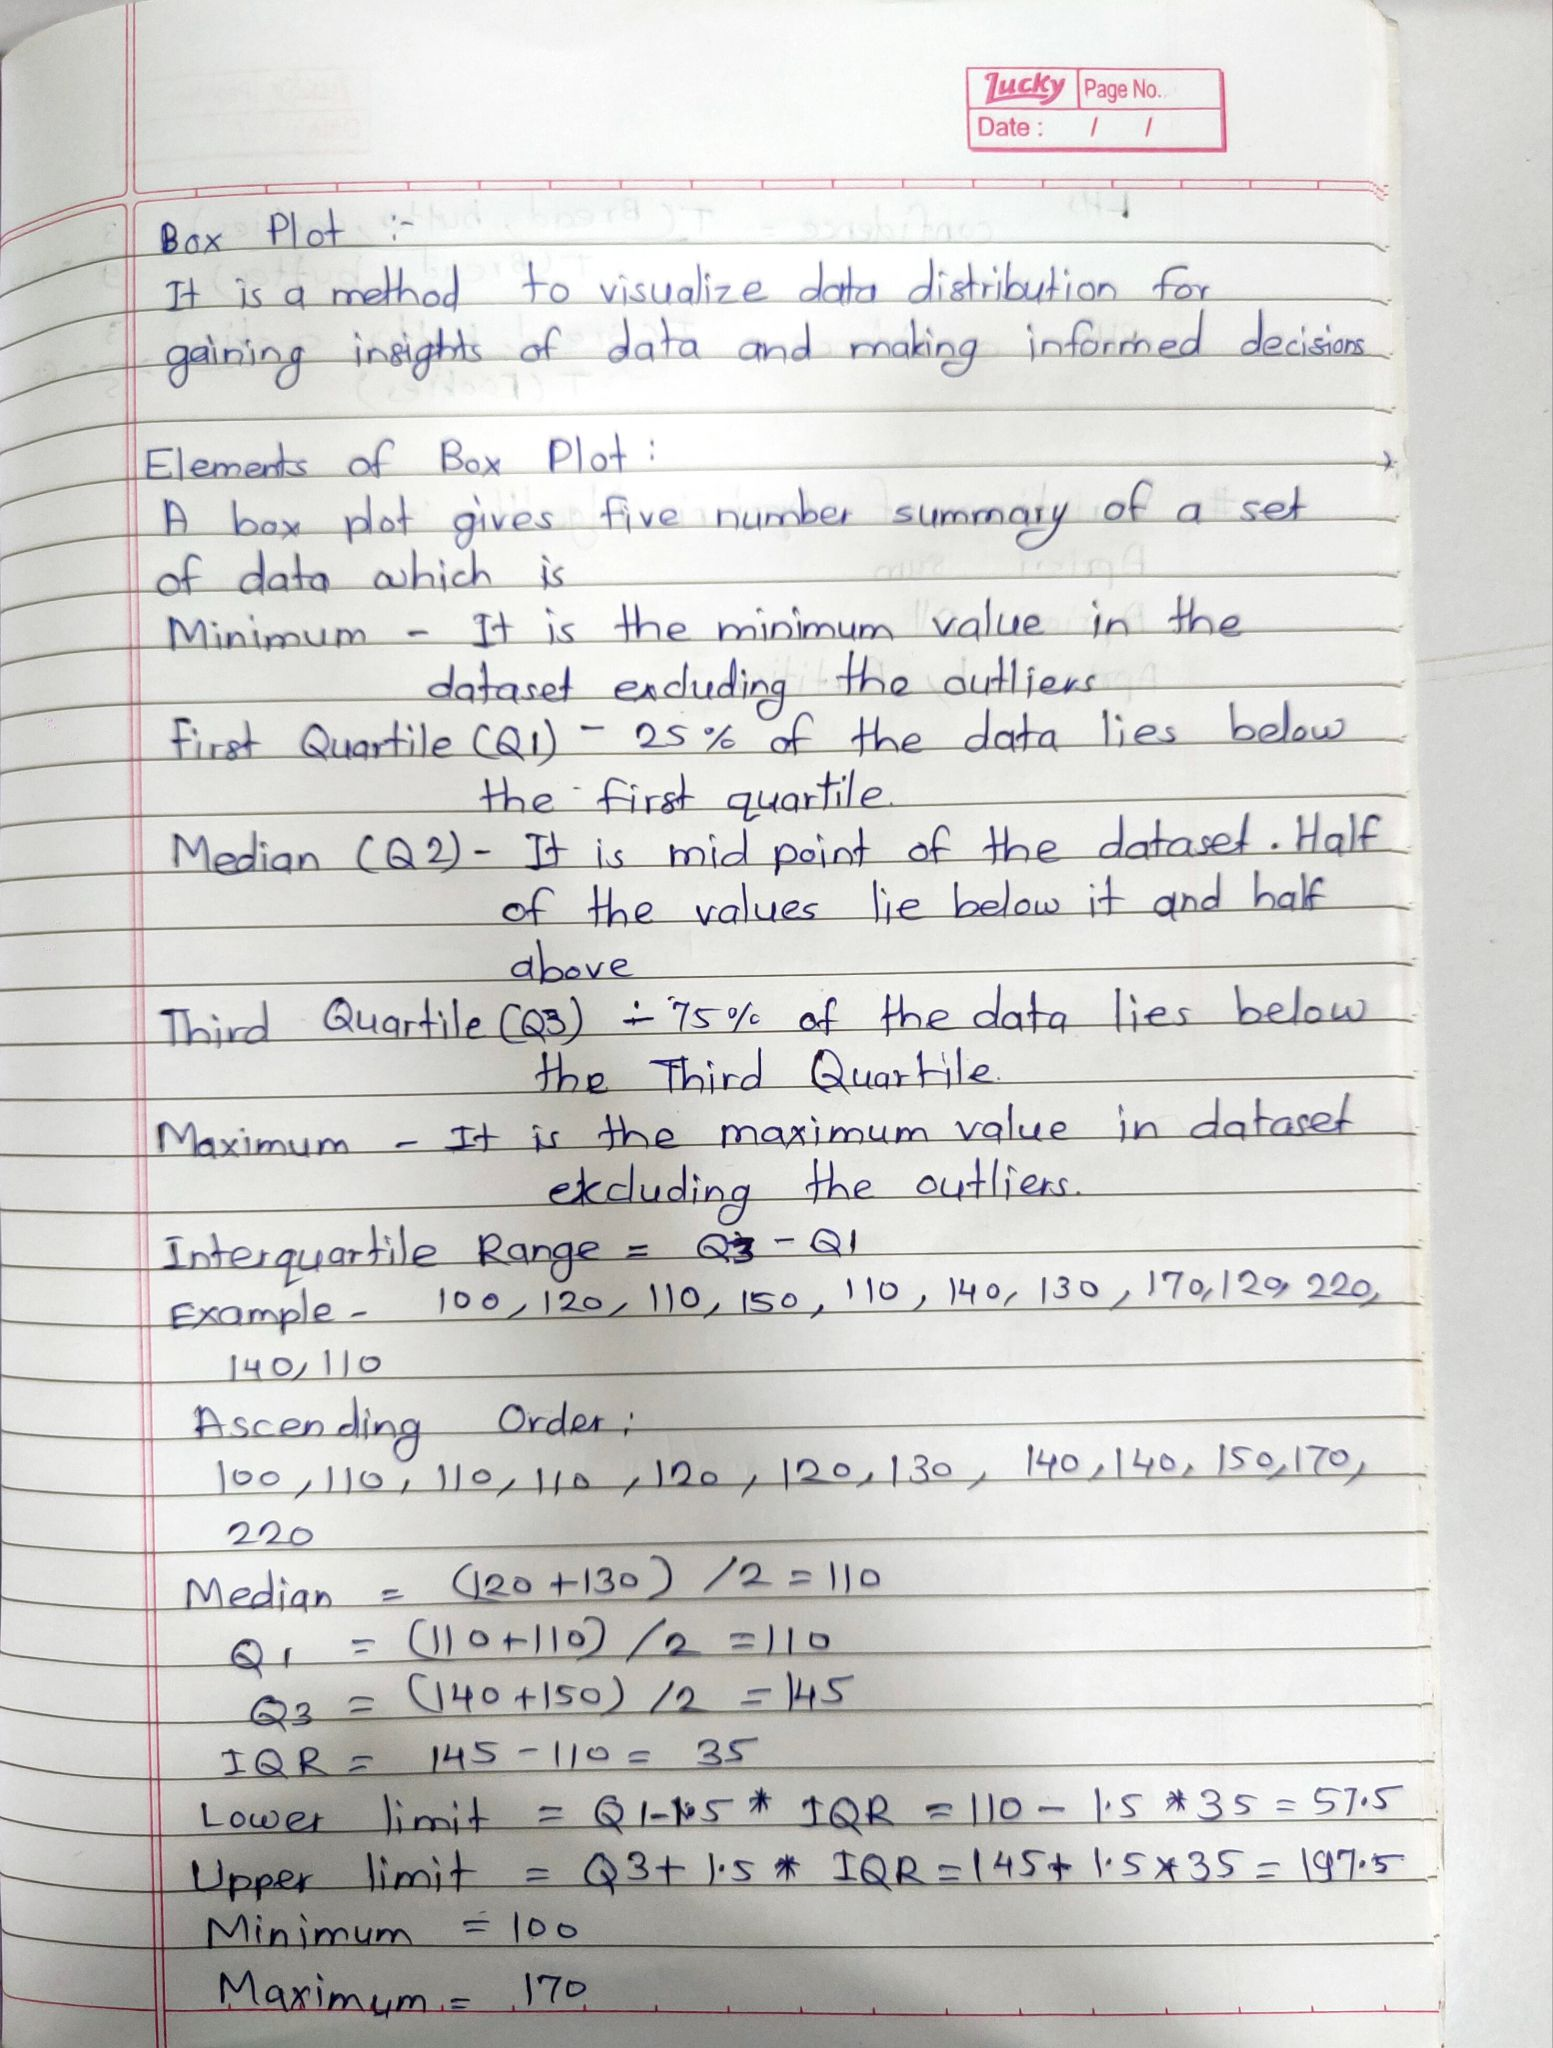 Lucky Page No.
Date : / /
Box Plot :-
It is a method to visualize data distribution for
gaining insights of data and making informed decisions
Elements of Box Plot :
A box plot gives five number summary of a set
of data which is
Minimum - It is the minimum value in the
dataset excluding the outliers
First Quartile (Q1) - 25% of the data lies below
the first quartile.
Median (Q2) - It is mid point of the dataset. Half
of the values lie below it and half
above
Third Quartile (Q3) :- 75% of the data lies below
the Third Quartile.
Maximum - It is the maximum value in dataset
excluding the outliers.
Interquartile Range = Q3 - Q1
Example - 100, 120, 110, 150, 110, 140, 130, 170, 120, 220,
140, 110
Ascending Order :
100, 110, 110, 110, 120, 120, 130, 140, 140, 150, 170,
220
Median = (120 + 130) /2 = 110
Q1 = (110+110) /2 = 110
Q3 = (140+150) /2 = 145
IQR = 145 - 110 = 35
Lower limit = Q1-1.5 * IQR = 110 - 1.5 * 35 = 57.5
Upper limit = Q3+ 1.5 * IQR = 145+ 1.5*35 = 197.5
Minimum = 100
Maximum = 170